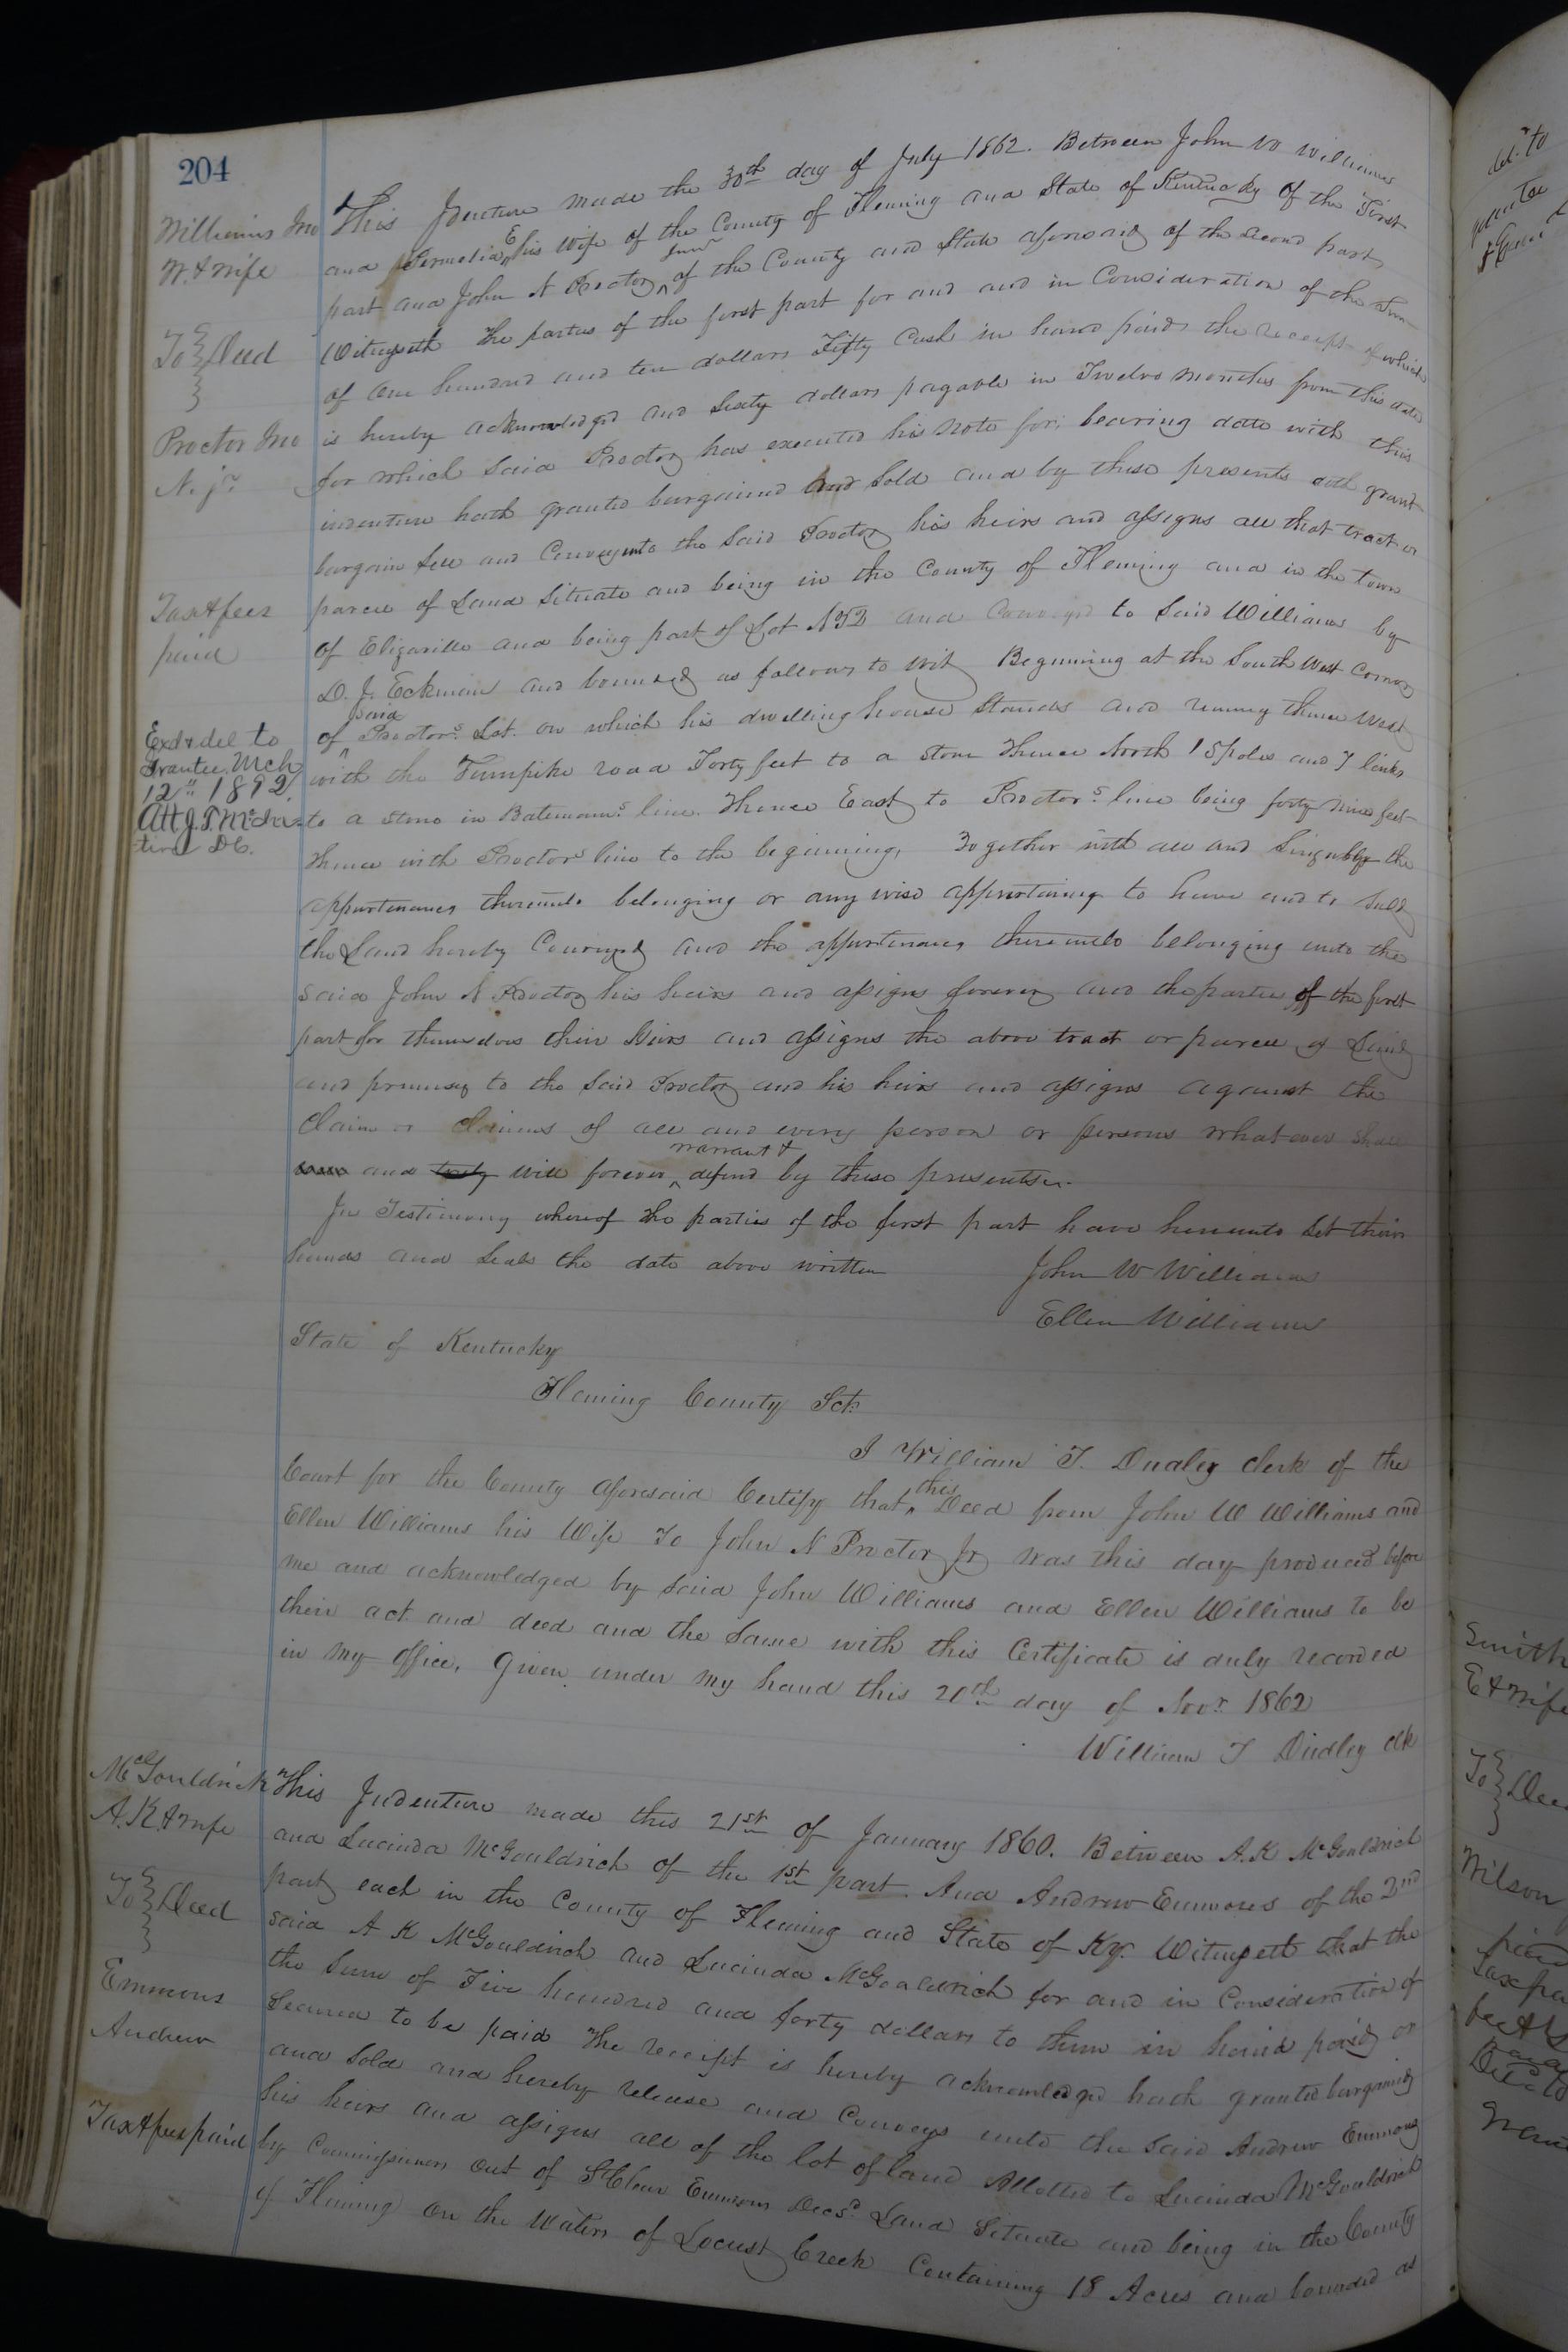 204
Williams Jno
W. & wife
To Deed
Proctor Jno
N. jr.
Tax & fees
paid
Exd & del to
Grantee Mch
12" 1892
Att J. T.
D.C.
This Indenture made the 30th day of July 1862. Between John W Williams
and Permelia E his Wife of the County of Fleming and State of Kentucky of the First
part and John N Proctor Junr of the County and State aforesaid of the second part
Witnesseth the parties of the first part for and and in Consideration of the Sum
of One hundred and ten dollars Fifty Cash in hand paid the receipt of which
is hereby acknowledged and Sixty dollars payable in Twelve months from this date
for which Said Proctor has executed his note for, bearing date with this
indenture hath granted bargained and Sold and by these presents doth grant
bargain Sell and Convey unto the Said Proctor his heirs and assigns all that tract or
parcel of Land Situate and being in the County of Fleming and in the town
of Elizaville and being part of Lot No and Conveyed to Said Williams by
D. J. Eckman and bounded as follows to wit Beginning at the South West Corner
of said Proctors Lot. on which his dwelling house Stands and runing thence West
with the Turnpike road Forty feet to a stone thence North 15 poles and 7 links
to a stone in Batemans line. thence East to Proctors line being forty nine feet
thence with Proctors line to the beginning, Together with all and Singular the
appurtenances thereunto belonging or any wise appurtaining to have and to hold
the Land hereby Conveyed and the appurtenances thereunto belonging unto the
said John N Proctor his heirs and assigns forever and the parties of the first
part for themselves their Heirs and assigns the above tract or parcel of Land
and premises to the Said Proctor and his heirs and assigns against the
Claim or Claims of all and every person or persons whatever shall
and truly will forever warrant & defend by these presents
In Testimony whereof the parties of the first part have hereunto Set their
hands and Seals the date above written John W Williams
Ellen Williams
State of Kentucky
Fleming County Sct.
I William T. Dudley Clerk of the
Court for the County aforesaid Certify that this Deed from John W Williams and
Ellen Williams his Wife To John N Proctor Jr was this day produced before
me and acknowledged by Said John Williams and Ellen Williams to be
their act and deed and the Same with this Certificate is duly recorded
in my office. Given under my hand this 20th day of Novr 1862
William T Dudley clk
McGouldrick
A. K. & wife
To Deed
Emmons
Andrew
Tax & fees paid
This Indenture made this 21st of January 1860. Between A. K McGouldrich
and Lucinda McGouldrich of the 1st part. And Andrew Emmons of the 2nd
part each in the County of Fleming and State of Ky. Witnesseth that the
said A K McGouldrich and Lucinda McGouldrich for and in Consideration of
the Sum of Five hundred and forty dollars to them in hand paid or
Secured to be paid the receipt is hereby acknowledged hath granted bargained
and Sold and hereby release and Conveys unto the said Andrew Emmons
his heirs and assigns all of the lot of land Allotted to Lucinda McGouldrich
by Commissioners out of StClear Emmons Decsd Land Situate and being in the County
of Fleming on the Waters of Locust Creek Containing 18 Acres and bounded as
del. to
Smith
E & wife
To Deed
Wilson
Tax